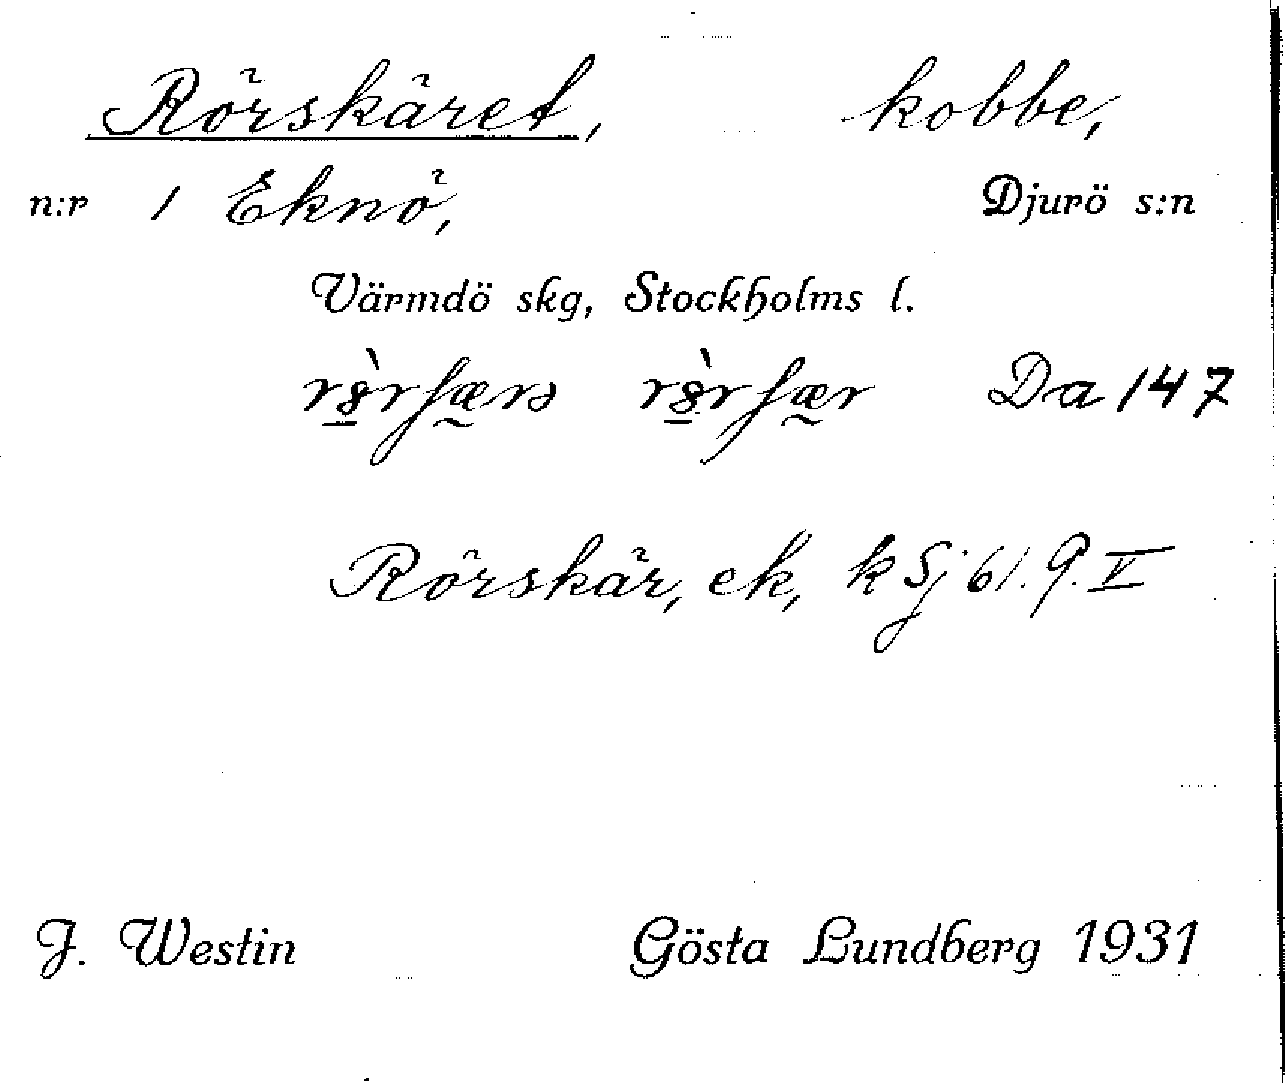 Rörskäret, kobbe,
n:r 1 Eknö, Djurö s:n
Värmdö skg, Stockholms l.
Da 147
Rörskär, ek, k Sj 61. 9. V
J. Westin Gösta Lundberg 1931